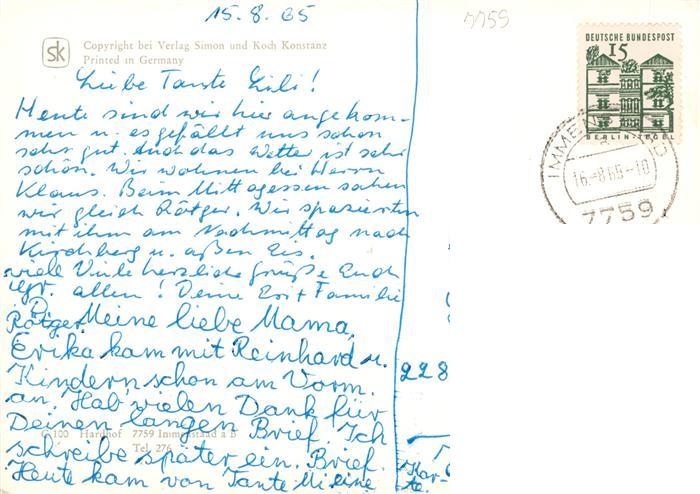 15.8.65
7759
sk
Copyright bei Verlag Simon und Koch Konstanz
Printed in Germany
Liebe Tante Lili!
Heute sind wir hier angekom-
men u. es gefällt uns schon
sehr gut. Auch das Wetter ist sehr
schön. Wir wohnen bei Herrn
Klaus. Beim Mittagessen sahen
wir gleich Rötger. Wir spazierten
mit ihm am Nachmittag nach
Kirchberg u. aßen Eis.
viele herzliche Grüße Euch
allen! Deine Familie
Rötger
Meine liebe Mama,
Erika kam mit Reinhard u.
Kindern schon am Vorm.
an. Hab' vielen Dank für
Deinen langen Brief. Ich
schreibe später ein. Brief.
Heute kam von Tante Mi eine
Kar-
te.
228
G 100 Hardhof 7759 Immenstaad a B
Tel. 276
DEUTSCHE BUNDESPOST
15
BERLIN-TEGEL
16.-8.65-10
7759